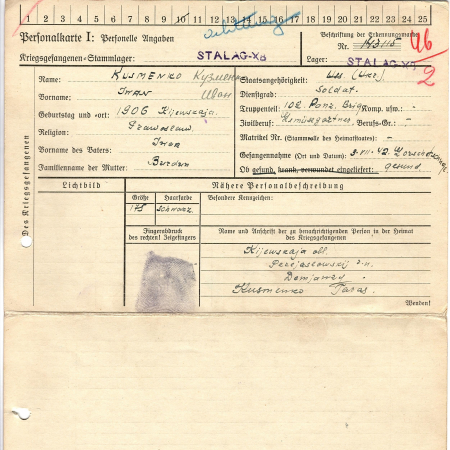 1 2 3 4 5 6 7 8 9 10 11 12 13 14 15 16 17 18 19 20 21 22 23 24 25
Personalkarte I: Personelle Angaben
Kriegsgefangenen-Stammlager: STALAG-XB
Beschriftung der Erkennungsmarke
Nr. 143115
Lager: STALAG-XB
Des Kriegsgefangenen
Name: Kusmenko Кузменко
Vorname: Iwan Иван
Geburtstag und -ort: 1906 Kijewskaja.
Religion: Prawoslaw.
Vorname des Vaters: Iwan
Familienname der Mutter:
Staatsangehörigkeit: (Ukr.)
Dienstgrad: Soldat.
Truppenteil: 102. Panz. Brig. Komp. usw.:
Zivilberuf: Berufs-Gr.:
Matrikel Nr. (Stammrolle des Heimatstaates):
Gefangennahme (Ort und Datum): 3-VII-42
Ob gesund, krank, verwundet eingeliefert: gesund
Lichtbild
Nähere Personalbeschreibung
Größe Haarfarbe Besondere Kennzeichen:
175 schwarz.
Fingerabdruck
des rechten! Zeigefingers
Name und Anschrift der zu benachrichtigenden Person in der Heimat
des Kriegsgefangenen
Kijewskaja obl.
Kusmenko Taras.
Wenden!